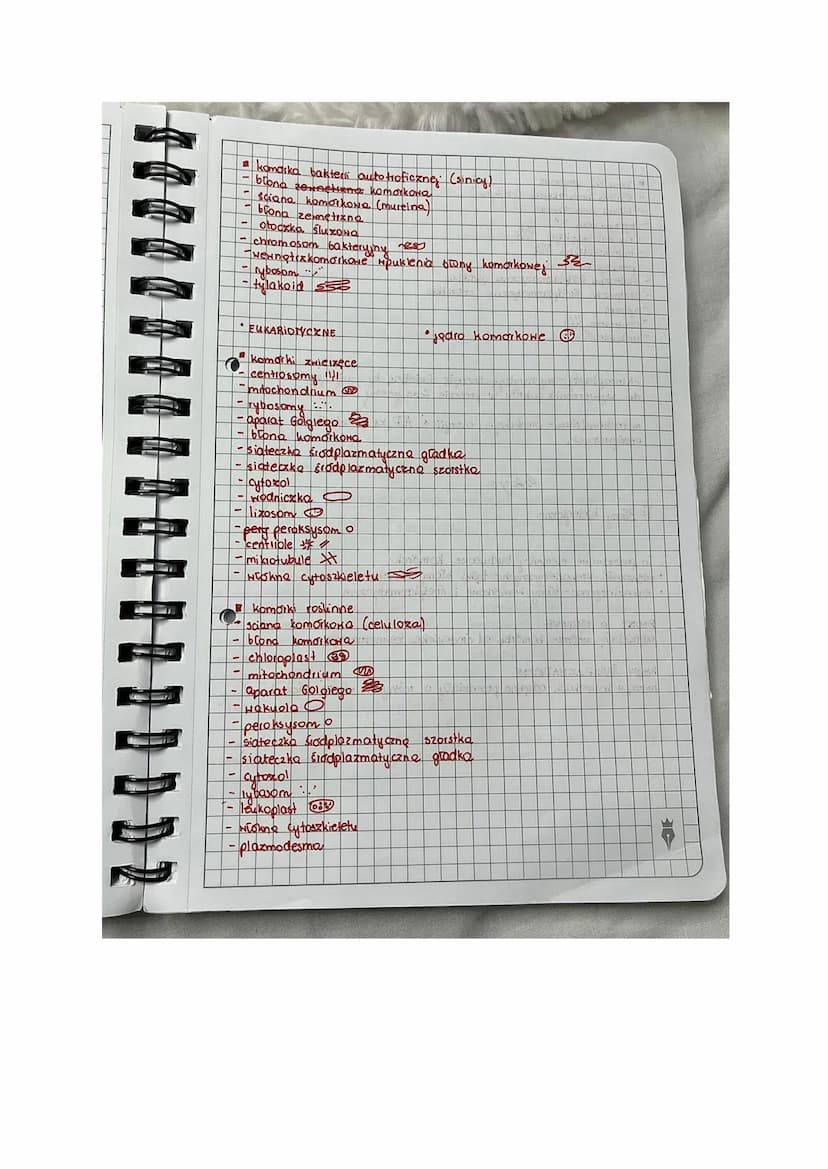 ▪ komórka bakterii autotroficznej (sinicy)
- błona zewnętrzna komórkowa
- ściana komórkowa (mureina)
- błona zewnętrzna
- otoczka śluzowa
- chromosom bakteryjny
- wewnątrzkomórkowe wpuklenia błony komórkowej
- rybosom
- tylakoid
• EUKARIOTYCZNE • jądro komórkowe
▪ komórki zwierzęce
- centrosomy
- mitochondrium
- rybosomy
- aparat Golgiego
- błona komórkowa
- siateczka śródplazmatyczna gładka
- siateczka śródplazmatyczna szorstka
- cytozol
- wodniczka
- lizosom
- perg peroksysom
- centriole
- mikotubule
- włókna cytoszkieletu
▪ komórki roślinne
- ściana komórkowa (celuloza)
- błona komórkowa
- chloroplast
- mitochondrium
- aparat Golgiego
- wakuola
- peroksysom
- siateczka śródplazmatyczną szorstka
- siateczka śródplazmatyczna gładka
- cytozol
- rybosom
- leukoplast
- włókna cytoszkieletu
- plazmodesma